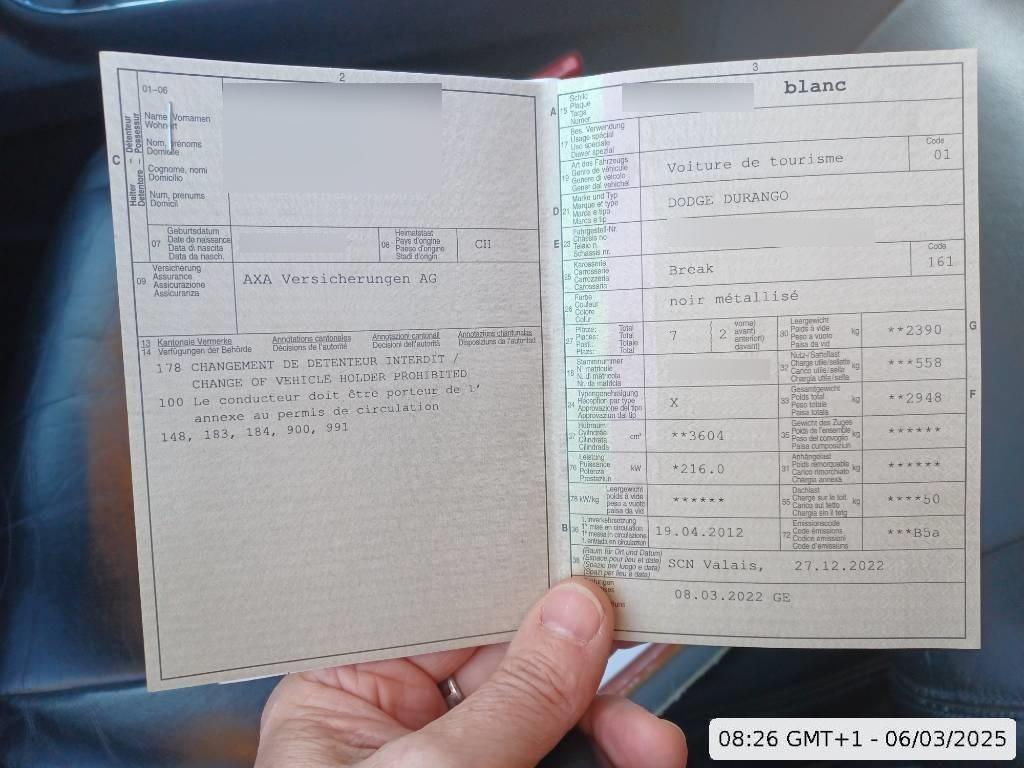 2
01-06
Name, Vornamen
Wohnort
Nom, prénoms
Domicile
Cognome, nomi
Domicilio
Num, prenums
Domicil
C
Halter – Détenteur
Detentore – Possessur
07
Geburtsdatum
Date de naissance
Data di nascita
Data da nasch.
08
Heimatstaat
Pays d'origine
Paese d'origine
Stadi d'origin
CH
09
Versicherung
Assurance
Assicurazione
Assicuranza
AXA Versicherungen AG
13 Kantonale Vermerke Annotations cantonales Annotazioni cantonali Annotaziuns chantunalas
14 Verfügungen der Behörde Décisions de l'autorité Decisioni dell'autorità Disposiziuns da l'autoritad
178 CHANGEMENT DE DETENTEUR INTERDIT /
CHANGE OF VEHICLE HOLDER PROHIBITED
100 Le conducteur doit être porteur de l'
annexe au permis de circulation
148, 183, 184, 900, 991
3
A 15
Schild
Plaque
Targa
Numer
blanc
17
Bes. Verwendung
Usage spécial
Uso speciale
Diever spezial
19
Art des Fahrzeugs
Genre de véhicule
Genere di veicolo
Gener dal vehichel
Voiture de tourisme
Code
01
D 21
Marke und Typ
Marque et type
Marca e tipo
Marca e tip
DODGE DURANGO
E 23
Fahrgestell-Nr.
Châssis no
Telaio n.
Schassis nr.
25
Karosserie
Carrosserie
Carrozzeria
Carossaria
Break
Code
161
26
Farbe
Couleur
Colore
Colur
noir métallisé
27
Plätze: Total
Places: Total
Posti: Totale
Plazs: Total
7
2
vorne)
avant)
anteriori)
davant)
30
Leergewicht
Poids à vide
Peso a vuoto
Paisa da vid
kg
**2390
G
18
Stammnummer
N° matricule
N. di matricola
Nr. da matricla
32
Nutz-/Sattellast
Charge utile/sellette
Carico utile/sella
Chargia utila/sella
kg
***558
24
Typengenehmigung
Réception par type
Approvazione del tipo
Approvaziun dal tip
X
33
Gesamtgewicht
Poids total
Peso totale
Paisa totala
kg
**2948
F
37
Hubraum
Cylindrée
Cilindrata
Cilindrada
cm³
**3604
35
Gewicht des Zuges
Poids de l'ensemble
Peso del convoglio
Paisa cumposiziun
kg
******
76
Leistung
Puissance
Potenza
Prestaziun
kW
*216.0
31
Anhängelast
Poids remorquable
Carico rimorchiato
Chargia annexa
kg
******
78 kW/kg
Leergewicht
poids à vide
peso a vuoto
paisa da vid
******
55
Dachlast
Charge sur le toit
Carico sul tetto
Chargia sin il tetg
kg
****50
B 36
1. Inverkehrsetzung
1re mise en circulation
1a messa in circolazione
1. entrada en circulaziun
19.04.2012
72
Emissionscode
Code émissions
Codice emissioni
Code d'emissiuns
***B5a
38
(Raum für Ort und Datum)
(Espace pour lieu et date)
(Spazio per luogo e data)
(Spazi per lieu e data)
SCN Valais, 27.12.2022
08.03.2022 GE
08:26 GMT+1 - 06/03/2025